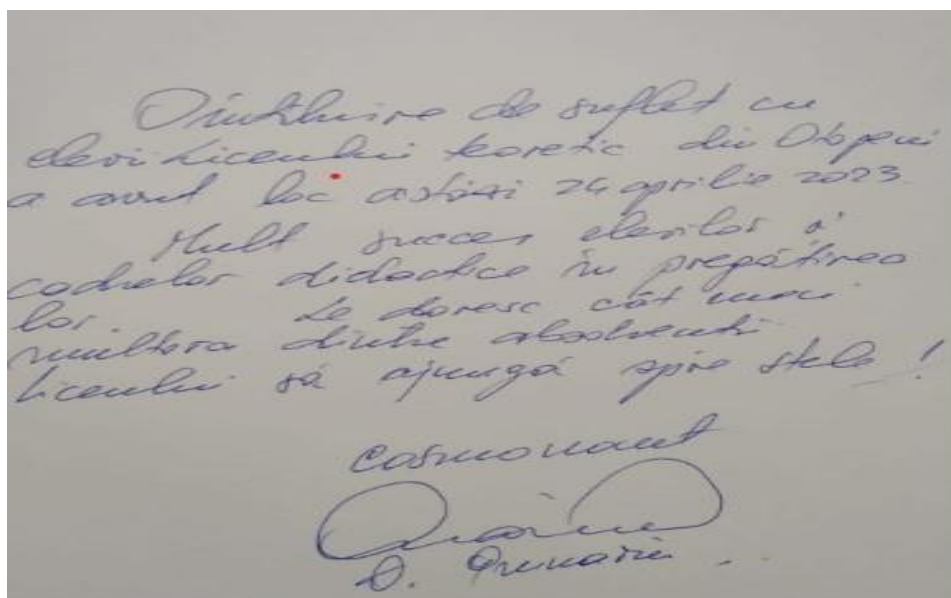 O întâlnire de suflet cu
elevi Liceului teoretic din Otopeni
a avut loc astăzi 24 aprilie 2023.
Mult succes elevilor și
cadrelor didactice în pregătirea
lor. Le doresc cât mai
multora dintre absolvenții
Liceului să ajungă spre stele!
Cosmonaut
D. Prunariu